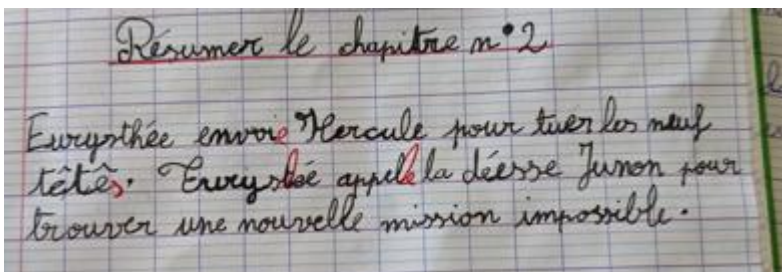 Résumer le chapitre n°2
Eurysthée envoie Hercule pour tuer les neuf
têtês. Eurysthée appelle la déesse Junon pour
trouver une nouvelle mission impossible.